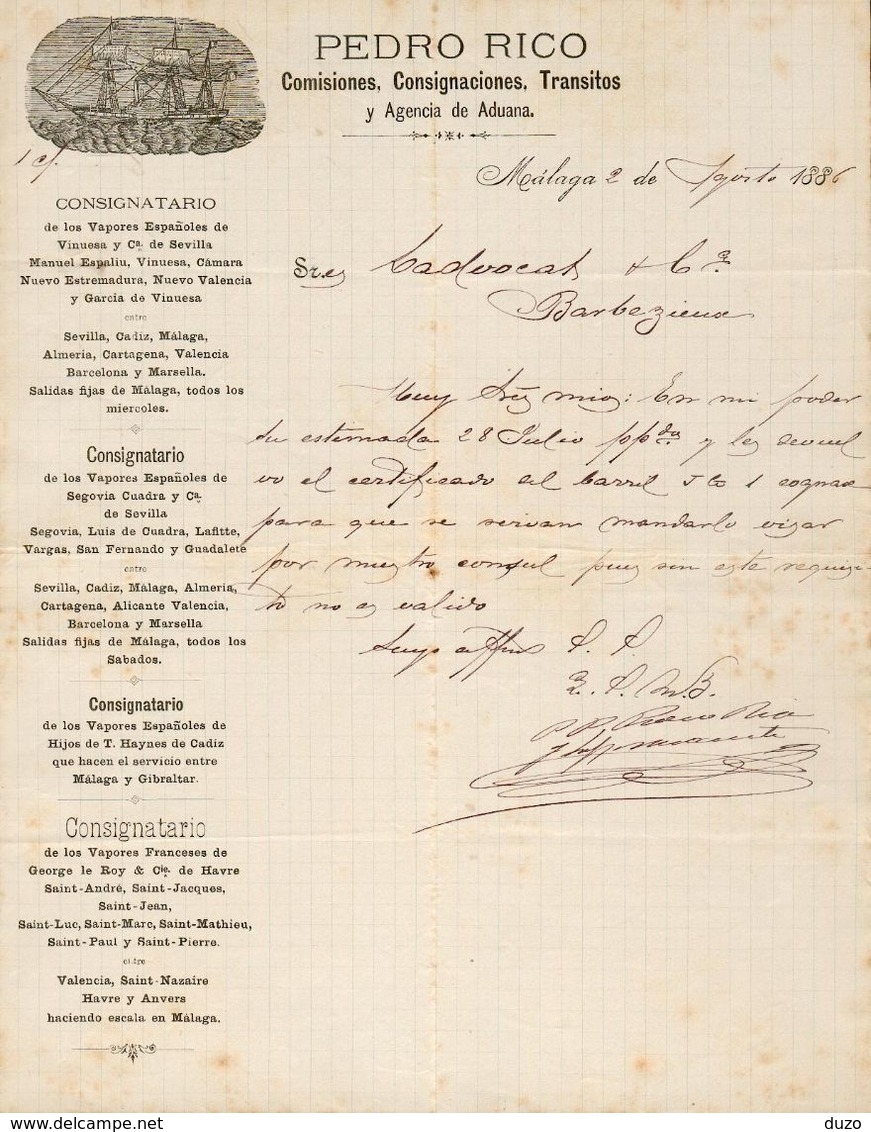 PEDRO RICO
Comisiones, Consignaciones, Transitos
y Agencia de Aduana.
Málaga 2 de Agosto 1886
CONSIGNATARIO
de los Vapores Españoles de
Vinuesa y Ca. de Sevilla
Manuel Espaliu, Vinuesa, Cámara
Nuevo Estremadura, Nuevo Valencia
y Garcia de Vinuesa
entre
Sevilla, Cadiz, Málaga,
Almeria, Cartagena, Valencia
Barcelona y Marsella.
Salidas fijas de Málaga, todos los
miercoles.
Consignatario
de los Vapores Españoles de
Segovia Cuadra y Ca.
de Sevilla
Segovia, Luis de Cuadra, Lafitte,
Vargas, San Fernando y Guadalete
entre
Sevilla, Cadiz, Málaga, Almeria,
Cartagena, Alicante Valencia,
Barcelona y Marsella
Salidas fijas de Málaga, todos los
Sabados.
Consignatario
de los Vapores Españoles de
Hijos de T. Haynes de Cadiz
que hacen el servicio entre
Málaga y Gibraltar.
Consignatario
de los Vapores Franceses de
George le Roy & Cie. de Havre
Saint-André, Saint-Jacques,
Saint-Jean,
Saint-Luc, Saint-Marc, Saint-Mathieu,
Saint-Paul y Saint-Pierre.
entre
Valencia, Saint-Nazaire
Havre y Anvers
haciendo escala en Málaga.
Sres Ladvocat & Ca
Barbezieux
Muy Sres mios: En mi poder
su estimada 28 Julio ppdo y les devuel
vo el certificado del barril 1 cognac
para que se sirvan mandarlo visar
por nuestro consul pues sin este requisi-
to no es valido
Suyo affmo S. S.
Q. S. M. B.
P. P. Pedro Rico
delcampe.net
duzo